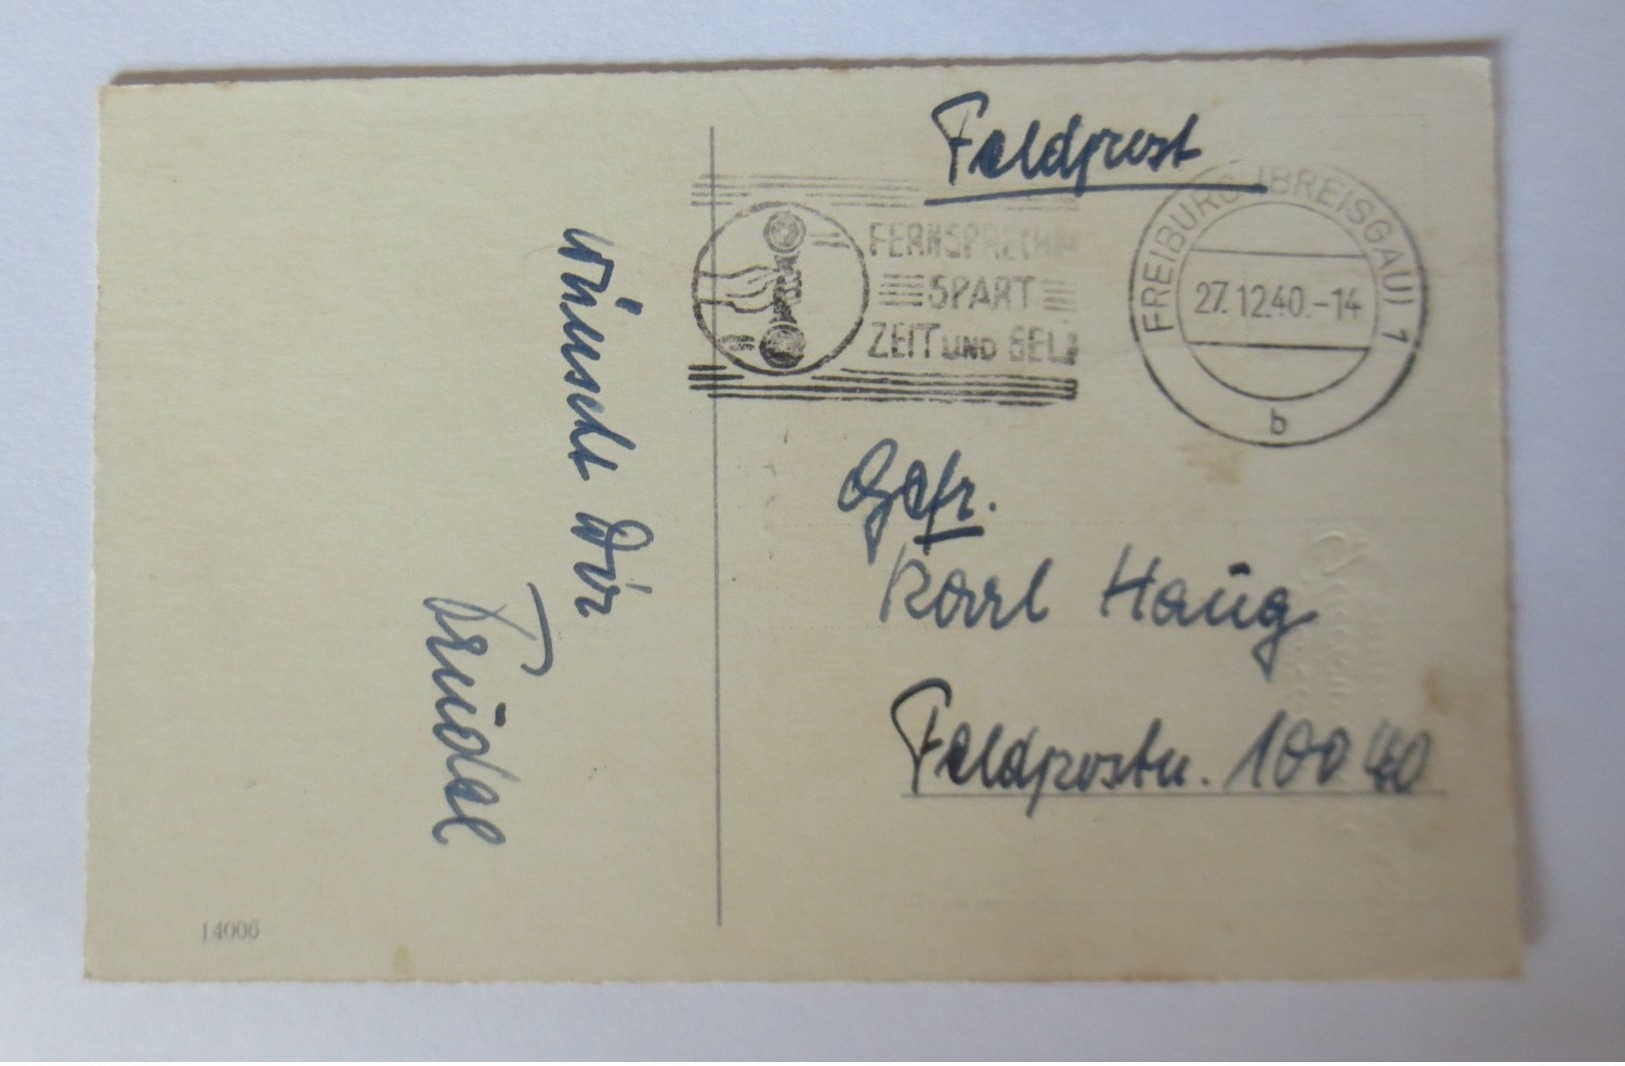 Feldpost
FERNSPRECHEN
SPART
ZEIT UND GELD
FREIBURG (BREISGAU) 1
27.12.40.-14
b
wünscht Dir
Trudel
Gefr.
Karl Haug
Feldpostn. 10040
14006